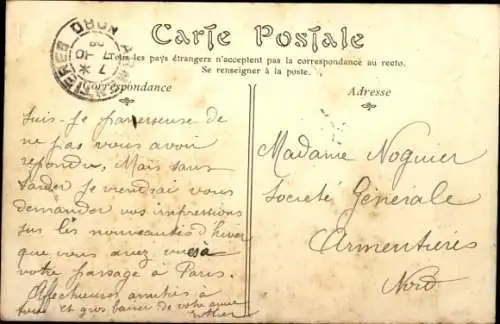 Carte Postale
Tous les pays étrangers n'acceptent pas la correspondance au recto.
Se renseigner à la poste.
Correspondance
Adresse
ARMENTIERES
NORD
Suis-je paresseuse de
ne pas vous avoir
répondu, Mais sans
tarder je viendrai vous
demander vos impressions
sur les nouveautés d'hiver
que vous avez vues à
votre passage à Paris.
Affectueuses amitiés à
tous et gros baiser de votre amie
Madame Noguier
Société Générale
Armentières
Nord